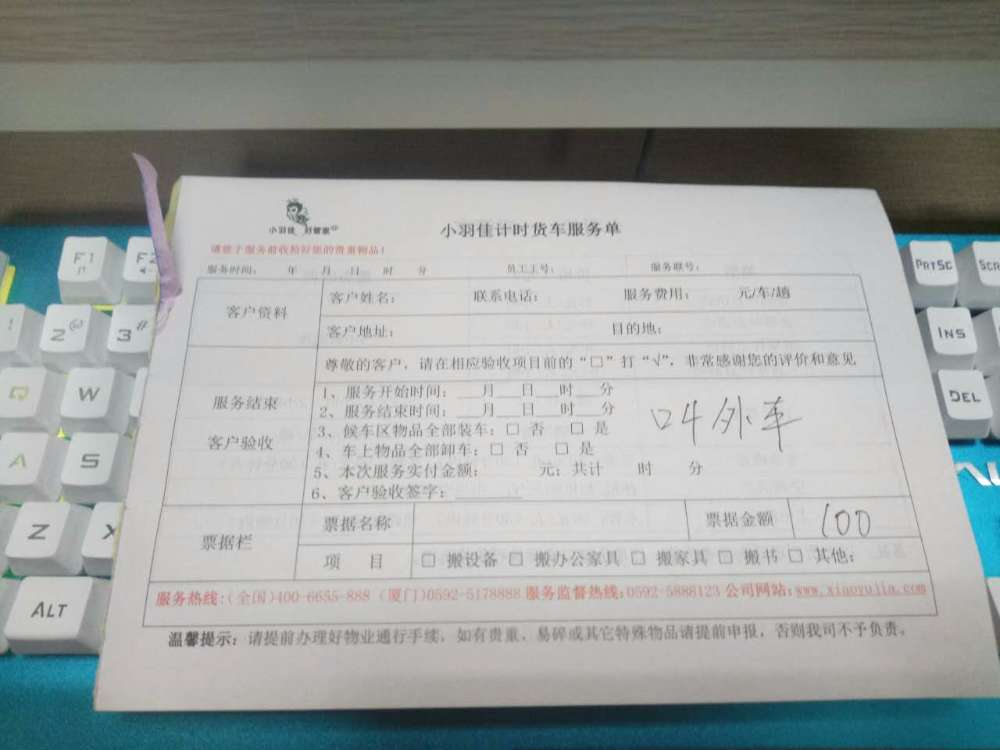 小羽佳 好管家
小羽佳计时货车服务单
请您于服务前收拾好您的贵重物品！
服务时间： 年 月 日 时 分 员工工号： 服务联号：
客户资料
客户姓名： 联系电话： 服务费用： 元/车/趟
客户地址： 目的地：
服务结束
客户验收
尊敬的客户，请在相应验收项目前的“□”打“√”，非常感谢您的评价和意见
1、服务开始时间：__月__日__时__分
2、服务结束时间：__月__日__时__分
3、候车区物品全部装车：□ 否 □ 是
4、车上物品全部卸车：□ 否 □ 是
5、本次服务实付金额：____元；共计 时 分
6、客户验收签字：____
叫外车
票据栏
票据名称 票据金额 100
项 目 □ 搬设备 □ 搬办公家具 □ 搬家具 □ 搬书 □ 其他：
服务热线：(全国)400-6655-888 (厦门)0592-5178888 服务监督热线：0592-5888123 公司网站：www.xiaoyujia.com
温馨提示：请提前办理好物业通行手续，如有贵重、易碎或其它特殊物品请提前申报，否则我司不予负责。
F1
F2
2@
3#
Q
W
A
S
Z
X
ALT
PRTSC
SCR
INS
DEL